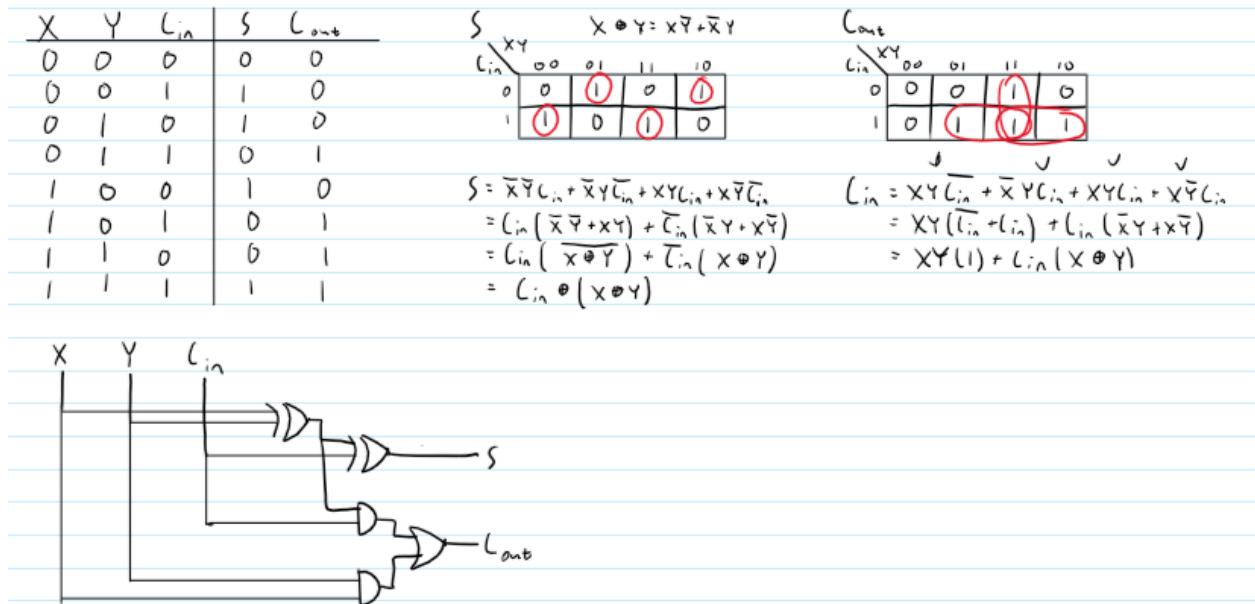 X Y C_in S C_out
0 0 0 0 0
0 0 1 1 0
0 1 0 1 0
0 1 1 0 1
1 0 0 1 0
1 0 1 0 1
1 1 0 0 1
1 1 1 1 1
S X ⊕ Y = XY̅ + X̅Y
XY
C_in 00 01 11 10
0 0 1 0 1
1 1 0 1 0
S = X̅Y̅C_in + X̅YC̅_in + XYC_in + XY̅C̅_in
= C_in(X̅Y̅ + XY) + C̅_in(X̅Y + XY̅)
= C_in(\overline{X ⊕ Y}) + C̅_in(X ⊕ Y)
= C_in ⊕ (X ⊕ Y)
C_out
XY
C_in 00 01 11 10
0 0 0 1 0
1 0 1 1 1
C_in = XYC̅_in + X̅YC_in + XYC_in + XY̅C_in
= XY(C̅_in + C_in) + C_in(X̅Y + XY̅)
= XY(1) + C_in(X ⊕ Y)
X Y C_in
S
C_out